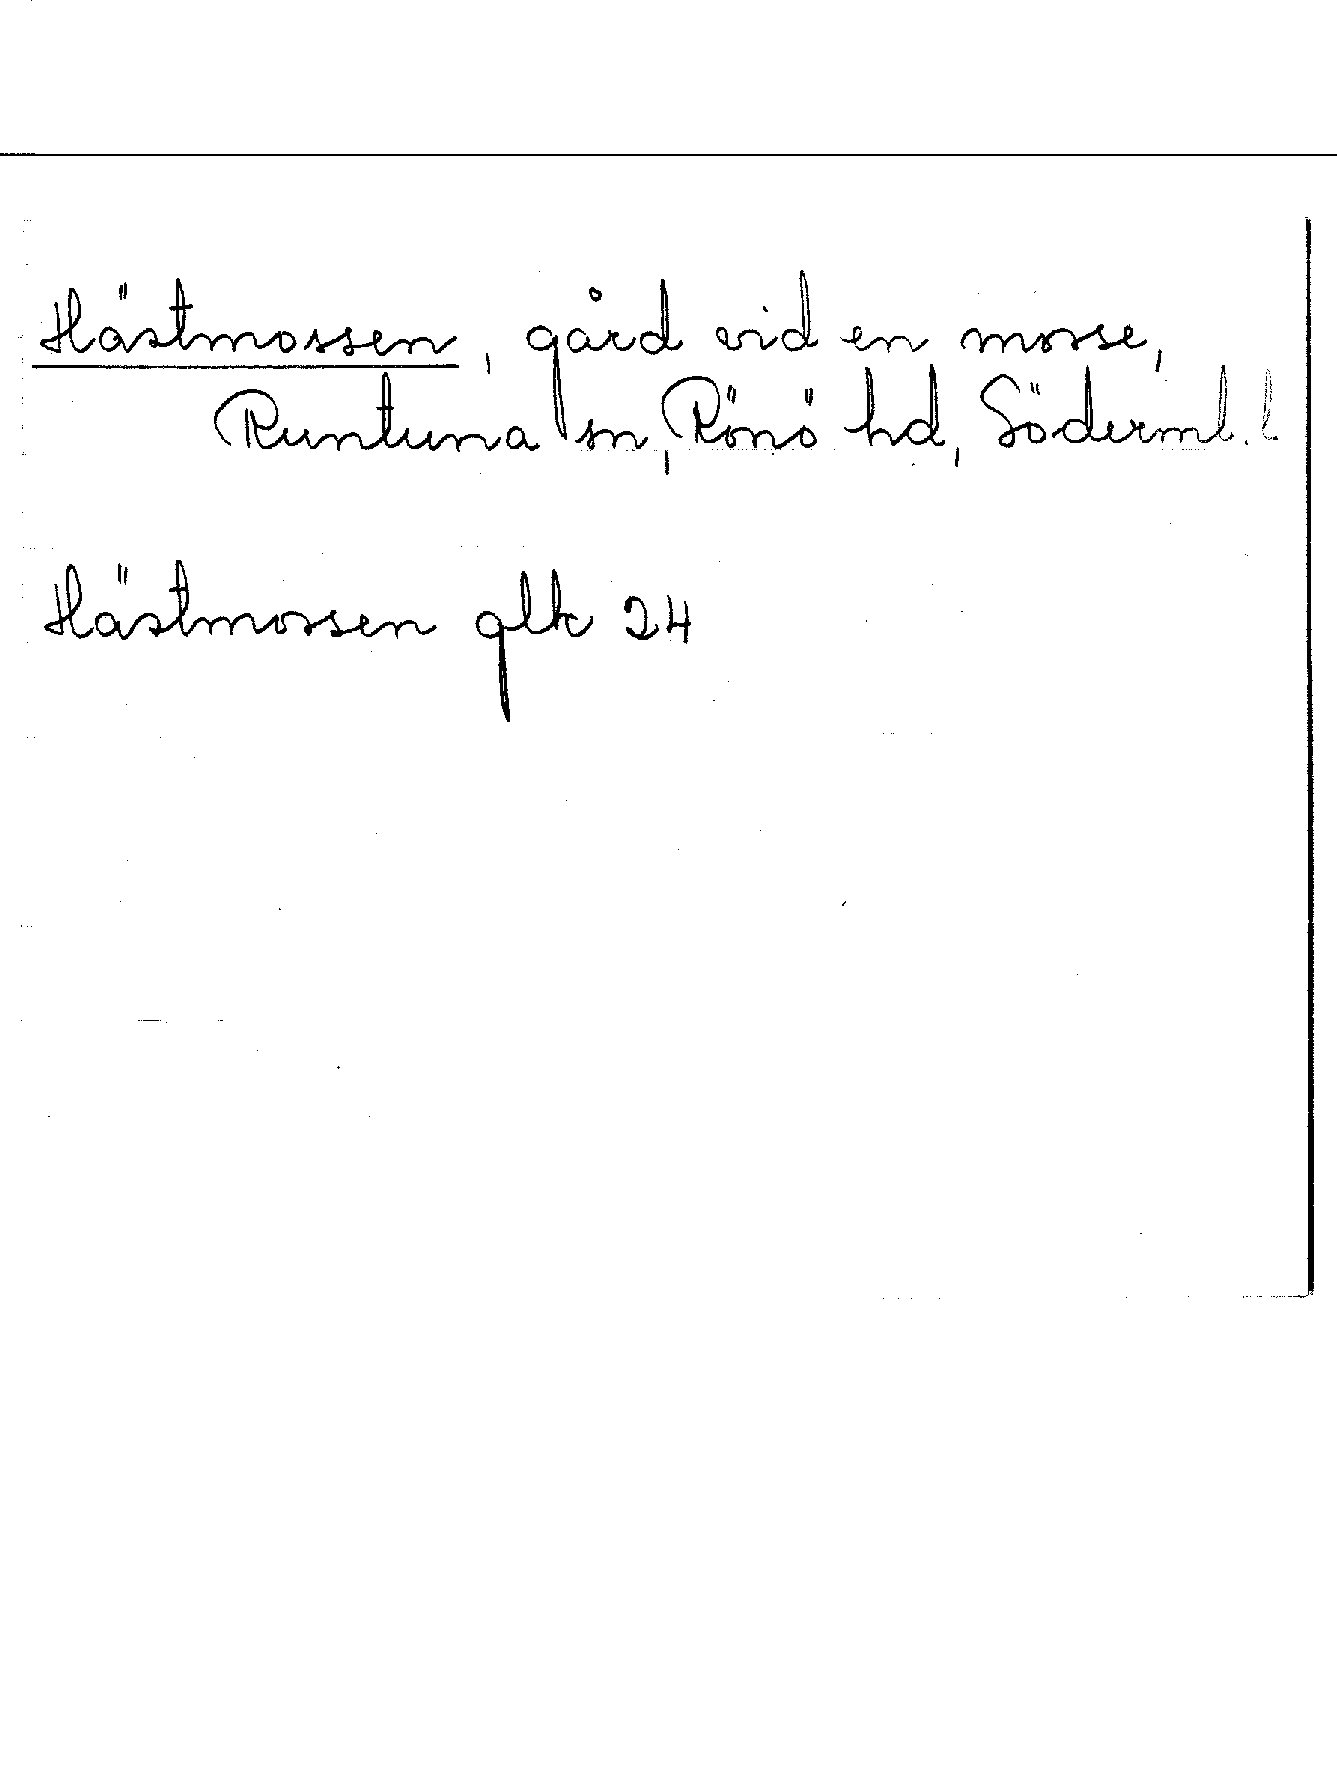 Hästmossen, gård vid en mosse,
Runtuna sn, Rönö hd, Söderml. l
Hästmossen glk 24